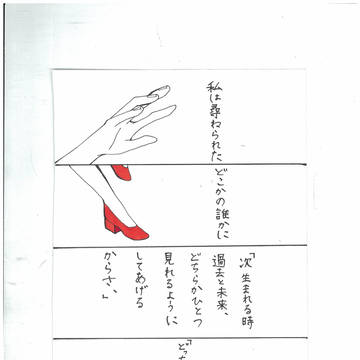 私は尋ねられた
どこかの誰かに
「次生まれる時
過去と未来、
どちらかひとつ
見れるように
してあげる
からさ、」
「どっち